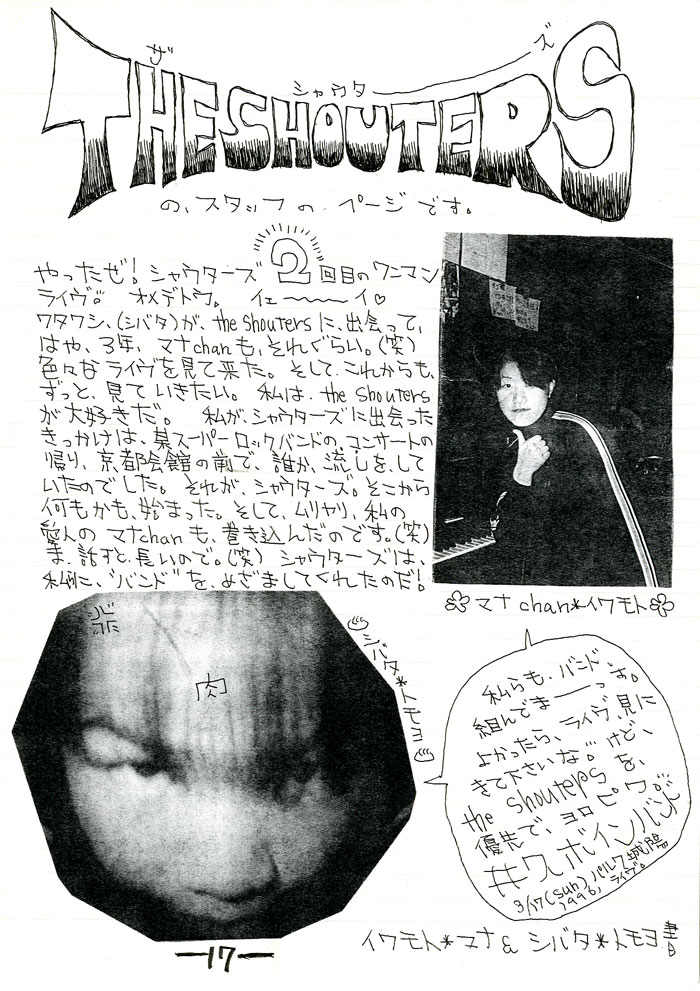 ザ シャウターズ
THE SHOUTERS
の、スタッフの ページです。
やったぜ!シャウターズ 2 回目のワンマン
ライヴ オメデトウ。 イェ〜〜イ♡
ワタワシ、(シバタ)が、the Shoutersに、出会って、
はや、3年、マナchanも、それぐらい。(笑)
色々なライヴを見て来た。そして、これからも、
ずっと、見ていきたい。私は、the Shouters
が大好きだ。 私が、シャウターズに出会った
きっかけは、某スーパーロックバンドの、コンサートの
帰り、京都会館の前で、誰か、流しを、して
いたのでした。それが、シャウターズ。そこから
何もかも、始まった。そして、ムリヤリ、私の
愛人のマナchanも、巻き込んだのです。(笑)
ま、話すと、長いので。(笑) シャウターズは、
私に、"バンド"を、めざましてくれたのだ!
マナchan*イワモト
肉
シバタ*トモヨ
私らも、バンド
組んでまーーっす。
よかったら、ライヴ、見に
きて下さいな。けど、
the shoutersを、
優先で、ヨロピク
#クボインバンド
3/17(sun)パルク城陽
1996, ライヴ。
イワモト*マナ & シバタ*トモヨ 書
—17—